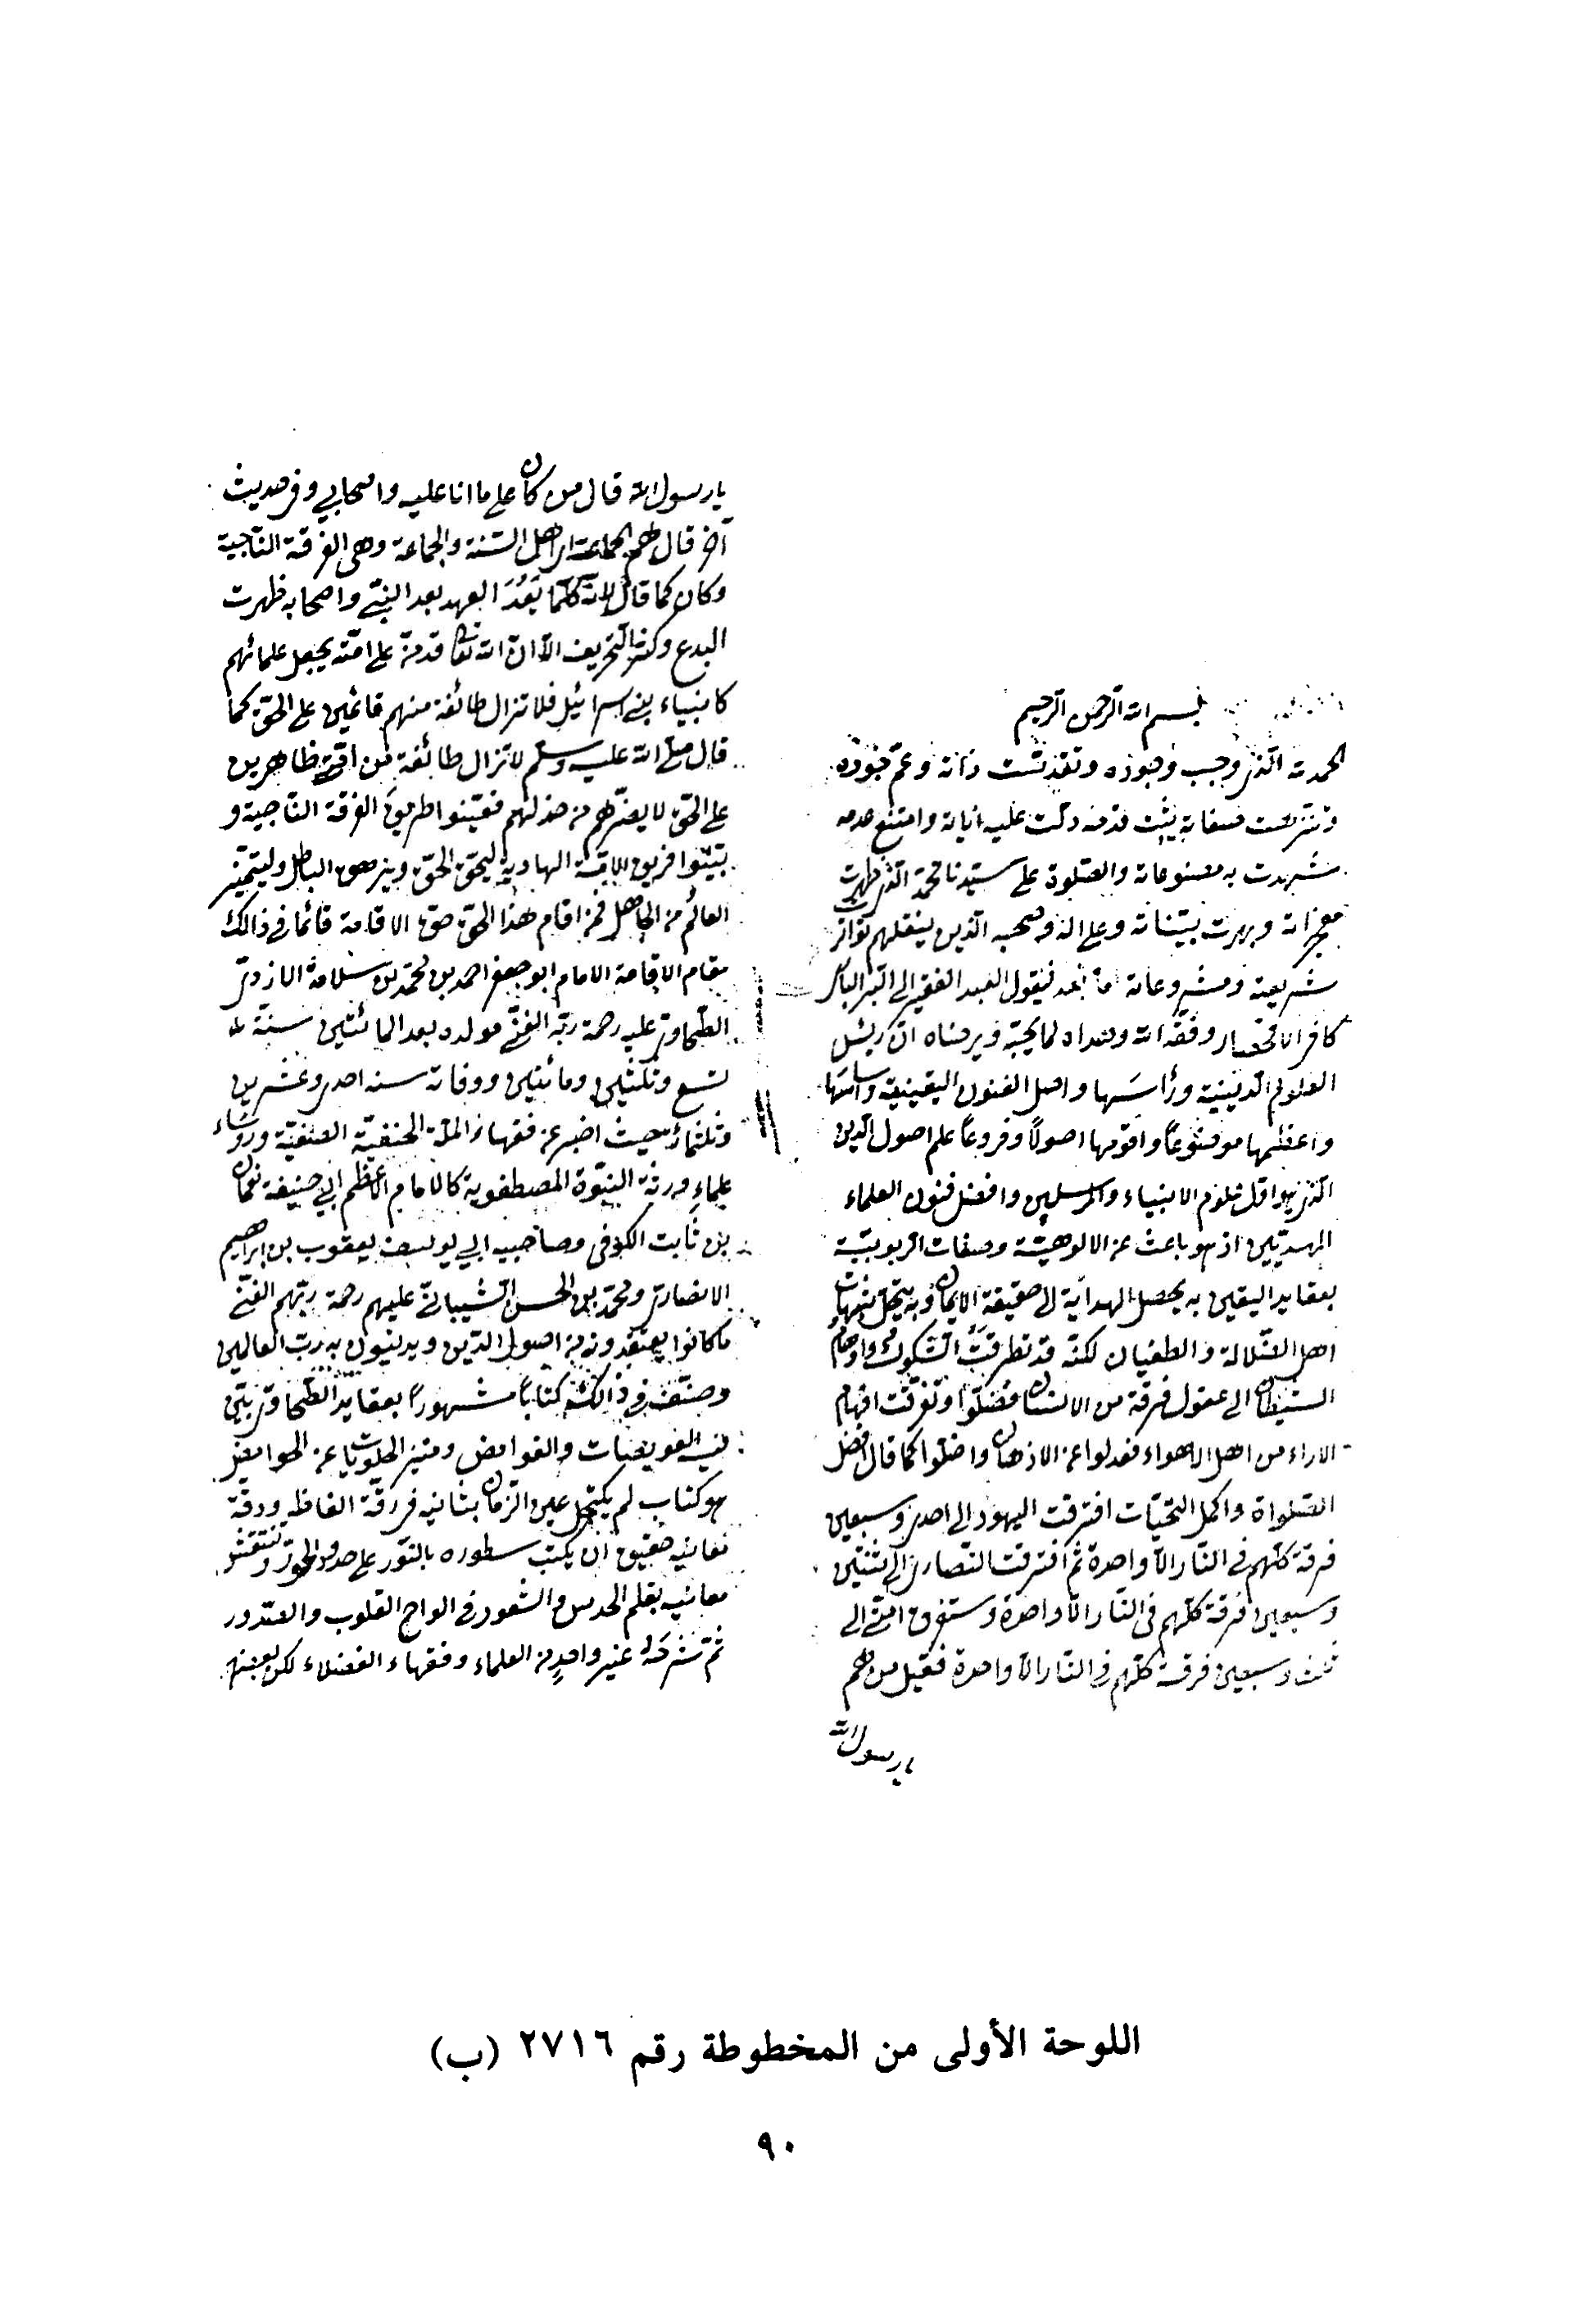 بسم الله الرحمن الرحيم
الحمد لله الذي وجب وجوده وتقدست ذاته وعم جوده
وتنزهت صفاته يثبت قدمه دلت عليه اياته وامتنع عدمه
شهدت به مصنوعاته والصلوة على سيدنا محمد الذي ظهرت
معجزاته وبهرت بيناته وعلى اله وصحبه الذين ينقلهم تواتر
شريعته ومشروعاته اما بعد فيقول العبد الفقير الى البر الباري
كافي الاقحصاري وفقه الله وهداه لما يحبه ويرضاه ان رئيس
العلوم الدينية ورأسها واصل الفنون اليقينية واساسها
واعظمها موضوعاً واقومها اصولاً وفروعاً علم اصول الدين
الذي هو اول علوم الانبياء والمرسلين وافضل فنون العلماء
المهديين اذ هو باعث عن الالوهية وصفات الربوبية
بعقايد اليقين به يحصل الهداية الى حقيقة الايمان وبه شبهات
اهل الضلالة والطغيان لكنه قد تطرقت الشكوك واوهام
الشيطان الى عقول فرقة من الانسان فضلوا وتفرقت افهام
الاراء من اهل الاهواء فعدلوا عن الاذهان واضلوا كما قال افضل
الصلواة واكمل التحيات افترقت اليهود الى احدى وسبعين
فرقة كلهم في النار الا واحدة ثم افترقت النصارى الى ثنتين
وسبعين فرقة كلهم في النار الا واحدة وستفرق امتي الى
ثلث وسبعين فرقة كلهم في النار الا واحدة فقيل من هم
يا رسول الله
يا رسول الله قال من كان على ما انا عليه واصحابي وفي حديث
آخر قال هم الجماعة اي اهل السنة والجماعة وهي الفرقة الناجية
وكان كما قال لانه كلما بَعُدَ العهد بعد النبي واصحابه ظهرت
البدع وكثر التحريف الا ان الله تعالى قد من على امته بجعل علمائهم
كانبياء بني اسرائيل فلا تزال طائفة منهم قائمين على الحق كما
قال صلى الله عليه وسلم لا تزال طائفة من امتي ظاهرين
على الحق لا يضرهم من خذلهم فعينوا طريق الفرقة الناجية و
بينوا فريق الامة الهادية ليحق الحق ويزهق الباطل وليتميز
العالم من الجاهل فمن اقام هذا الحق حق الاقامة قائما في ذالك
مقام الاقامة الامام ابو جعفر احمد بن محمد بن سلامة الازدي
الطحاوي عليه رحمة ربه الغني مولده بعد المائتين سنة
تسع وثلثين ومائتين ووفاته سنه احدى وعشرين
وثلثمائة حيث اخبر عن فقهاء الملة الحنفية الحنيفية ورؤساء
علماء ورثة النبوة المصطفوية كالامام الاعظم ابي حنيفة نعمان
بن ثابت الكوفي وصاحبيه ابي يوسف يعقوب بن ابراهيم
الانصاري ومحمد بن الحسن الشيباني عليهم رحمة ربهم الغني
ما كانوا يعتقدونه من اصول الدين ويدينون به رب العالمين
وصنف في ذالك كتاباً مشهوراً بعقايد الطحاوي بين
فيه العويصات والغوامض وميز الحلويات عن الحوامض
هو كتاب لم يكتحل عين الزمان بثانيه في رقة الفاظه ودقة
معانيه حقيق ان يكتب سطوره بالنور على خدود الحور وتنتقش
معانيه بقلم الحدس والشعور في الواح القلوب والصدور
ثم شرحه غير واحدٍ من العلماء وفقهاء الفضلاء لكن بعضهم
اللوحة الأولى من المخطوطة رقم ٢٧١٦ (ب)
٩٠